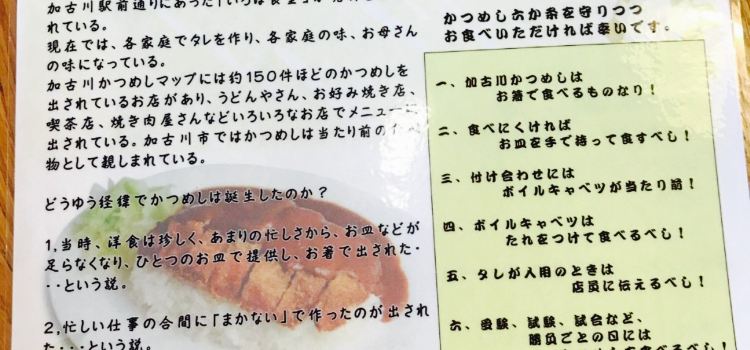 加古川駅前通りにあった「いろは食堂」が
れている。
現在では、各家庭でタレを作り、各家庭の味、お母さん
の味になっている。
加古川かつめしマップには約150件ほどのかつめしを
出されているお店があり、うどんやさん、お好み焼き店、
喫茶店、焼き肉屋さんなどいろいろなお店でメニュー
出されている。加古川市ではかつめしは当たり前の
物として親しまれている。
どうゆう経緯でかつめしは誕生したのか？
1,当時、洋食は珍しく、あまりの忙しさから、お皿などが
足らなくなり、ひとつのお皿で提供し、お箸で出された・
・・という説。
2,忙しい仕事の合間に「まかない」で作ったのが出され
た・・・という説。
かつめし六か条を守りつつ
お食べいただければ幸いです。
一、加古川かつめしは
お箸で食べるものなり！
二、食べにくければ
お皿を手で持って食すべし！
三、付け合わせには
ボイルキャベツが当たり前！
四、ボイルキャベツは
たれをつけて食べるべし！
五、タレが入用のときは
店員に伝えるべし！
六、受験、試験、試合など、
勝負ごとの日には
食べるべし！